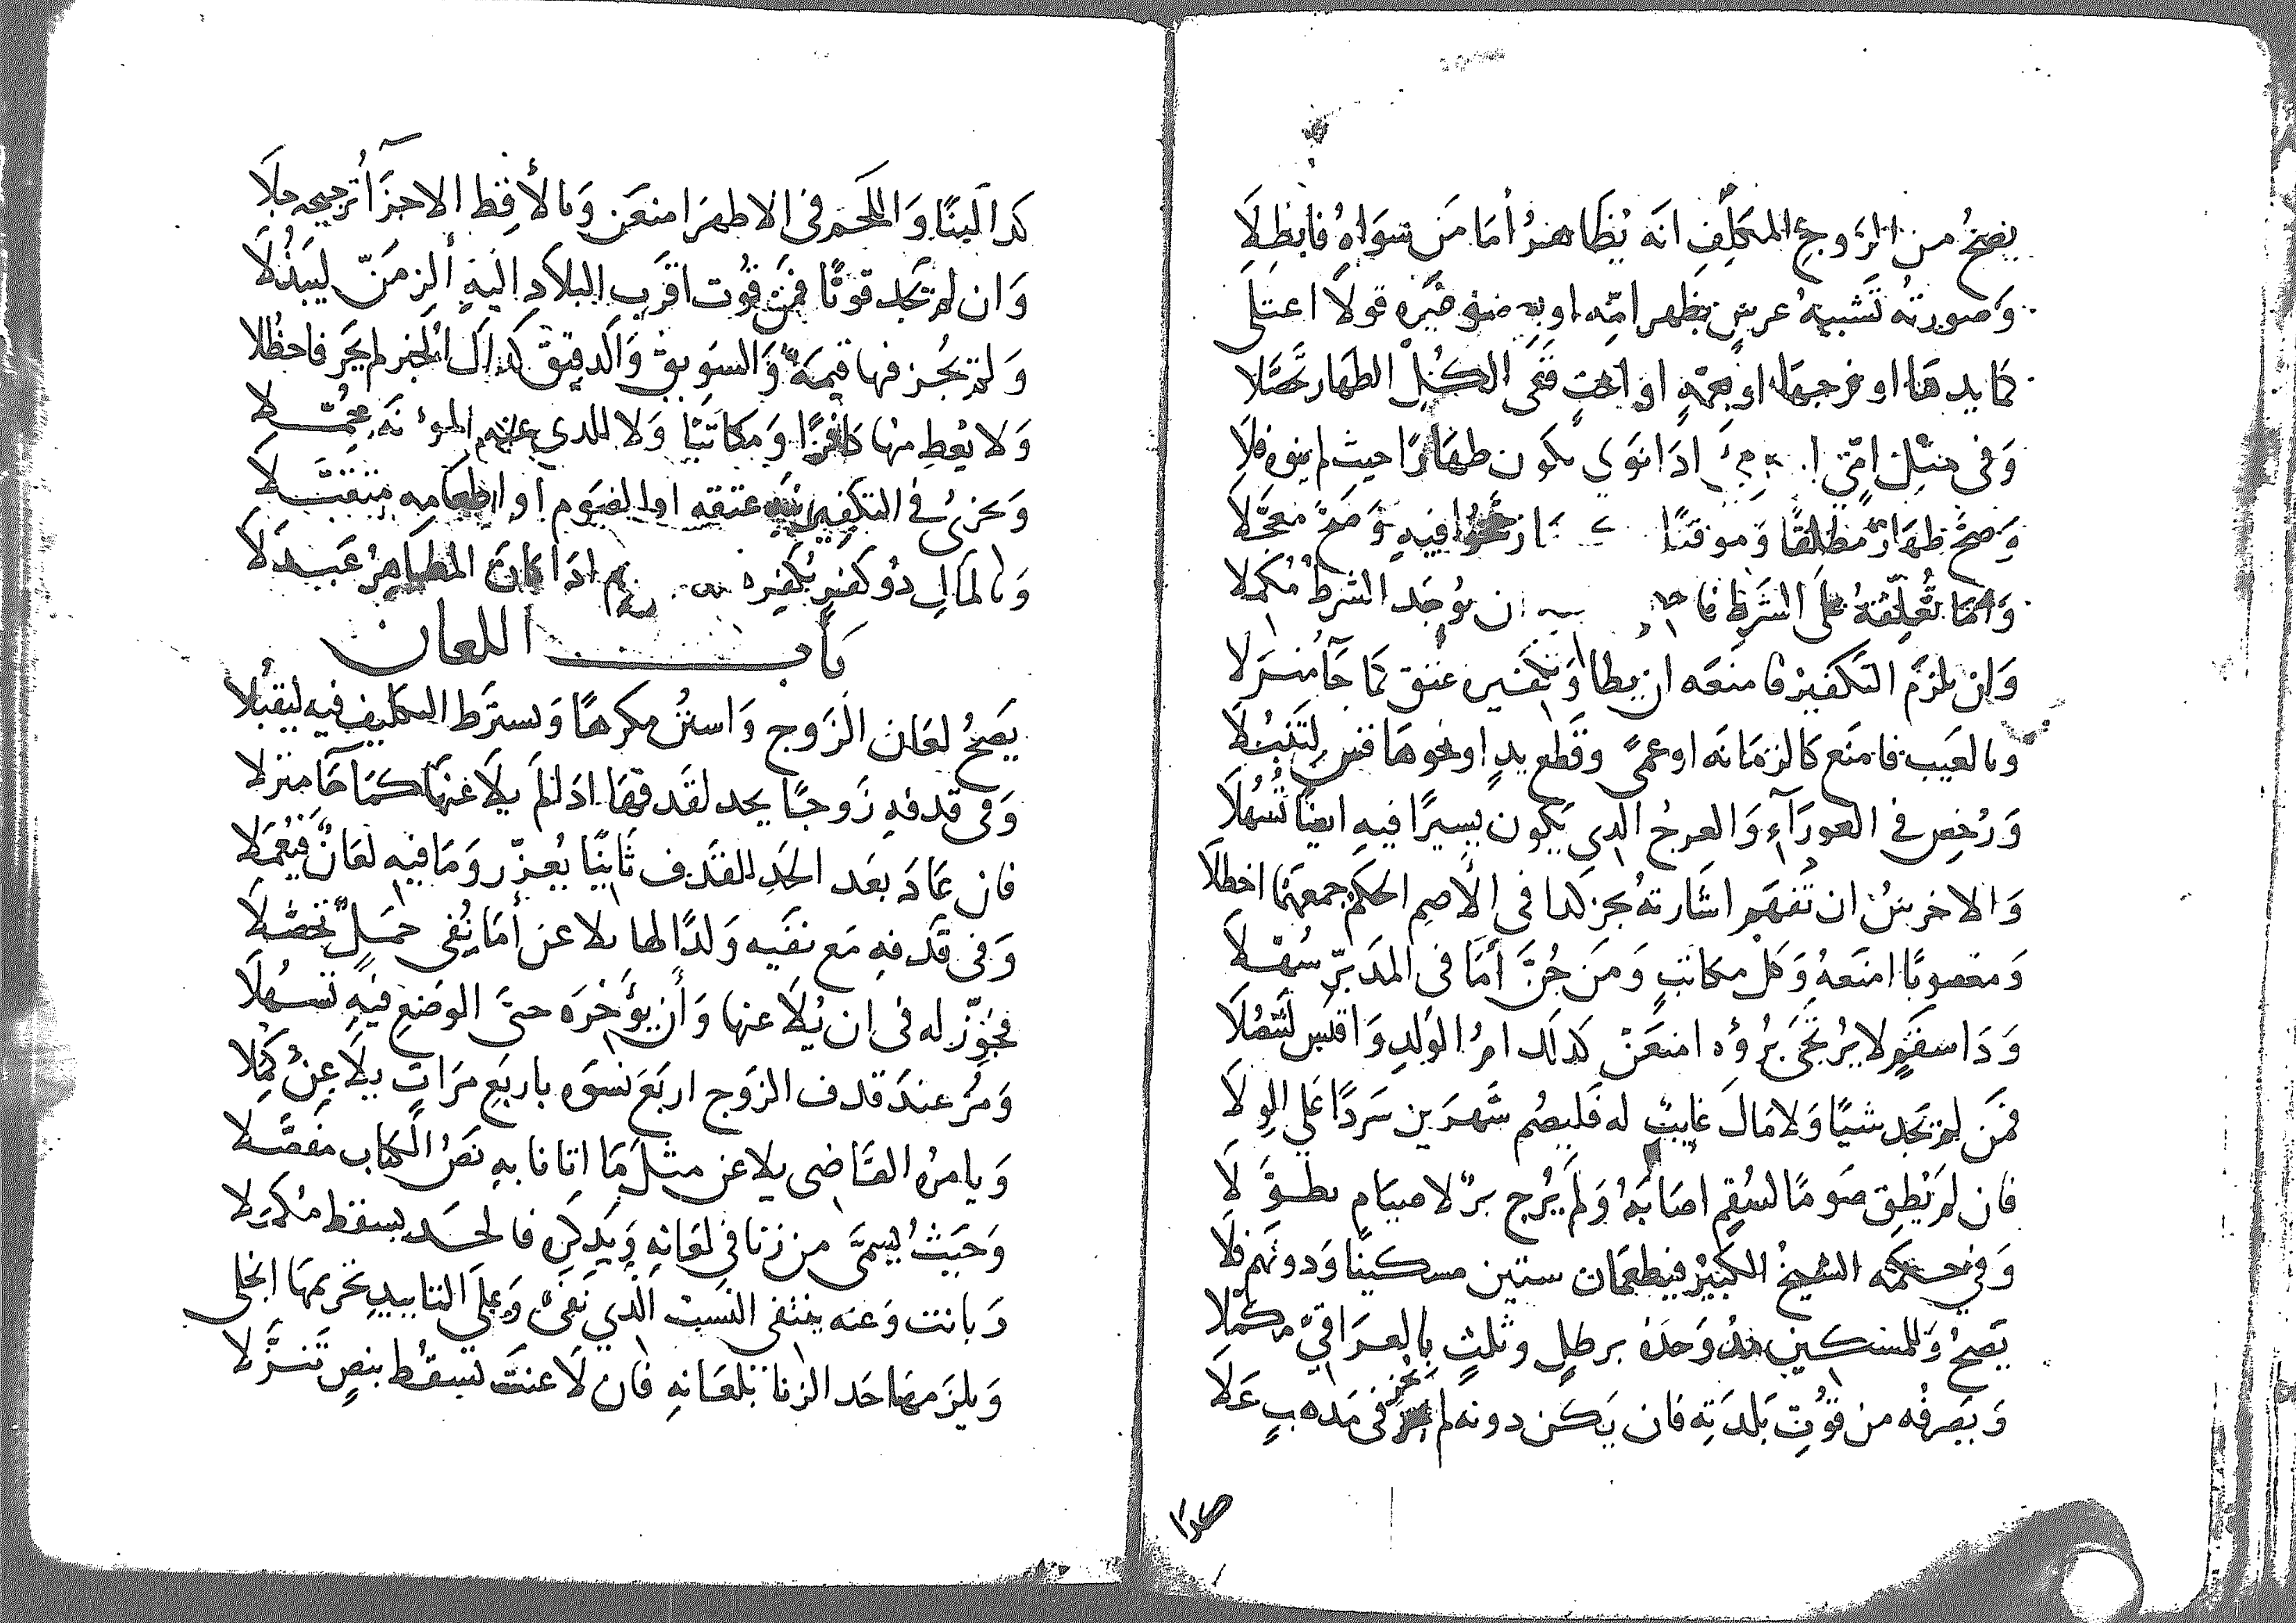 يصحُ من الزوجِ المكلفِ انه يُظاهرُ أما من سواهُ فابطلا
وصورتهُ تشبيهُ عرسٍ بظهر امّه او به غيره قولا اعتلى
كما يدها او فرجها او بعمةٍ او اختٍ ففى الكل الظهار تحصَّلا
وفى مثل امّي اذا نوى يكون ظهارًا حيث لم ينوه فلا
وصحّ ظهارٌ مطلقًا وموقتًا فيه وصحّ معجّلا
وامّا تُعلّقهُ على الشرط فا ان يوجد الشرطُ مُكملا
وان يلزم التكفير فامنعه ان يطا وتكفيره عتق كما جآ مُنزلا
وبالعيب فامنع كالزمانه او عمىً وقطع يدٍ او نحوها قس لتنبُلا
ورُخص في العورآءِ والعرجُ الذي يكون يسيرًا فيه ايضًا تُسُهلا
والاخرسُ ان تفهم اشارتهُ يجز كذا فى الأصم الحكم جمعهما احظلا
ومغصوبًا امنعهُ وكل مكاتبٍ ومن جُنّ أما فى المدبّر سُهّلا
وذا سقمٍ لا يُرتجى بُرؤه امنعنْ كذلك امُ الولدِ واقتبس لتفضلا
فمن لم يجد شيًا ولا مالَ غايبٌ له فليصُم شهرين سردًا على الولا
فان لم يُطق صومًا لسُقمٍ اصابهُ ولم يُرج برٌ لا صيام تطوّلا
وفي حكمه الشيخُ الكبيرُ فيطعمان ستين مسكينًا ودونهم فلا
يصحُ وللمسكين مُدٌ وحدهُ برطلٍ وثلثٍ بالعراقيّ مكملا
ويصرفُه من قوتِ بلدتِه فان يكن دونه لم يجز فى مذهبٍ علا
كذا
كذا لبنًا واللحم فى الاظهر امنعن وبالأقط الاجزآ ترجيحه جلا
وان لم يجد قوتًا فمن قُوت اقرب البلادِ اليه ألزمنّ ليبذُلا
ولم يجز فيها قيمةٌ والسويق والدقيق كذاك الخبز لم يجز فاحظُلا
ولا يُعطِ منها كافرًا ومكاتبًا ولا للذي عنهم المؤنه تحمّلا
ويجزئ فى التكفير نية عتقه او الصوم او اطعامه متنفلا
وبالمال ذو كفرٍ يكفره اذا كان المظاهرُ عبدلا
باب اللعان
يصحُ لعان الزوج واستثن مكرهًا ويشترط التكليف فيه ليقبُلا
وفى قذفه زوجًا يحد لقذفها اذا لم يلاعنها كما جآ منزلا
فان عاد بعد الحدِ للقذف ثانيًا يُعزّر وما فيه لعانٌ فيُعملا
وفى قذفه مع نفيه ولدًا لها يلاعن أما نُفى حملٍ تحصّلا
فجوّز له فى ان يُلاعنها وأن يؤخره حتى الوضع فيه تسهُلا
ومُر عند قذف الزوج اربع نسوه باربع مراتٍ يلاعنُ كُمّلا
ويامرهُ القاضى يلاعن مثل ما اتانا به نصُ الكتاب مفصّلا
وحيثُ يسمىَّ من زنا في لعانه ويذكره فالحد يسقط مكملا
وبانت وعنه ينتفى النسبت الذي نفىَ وعلى التابيدِ تحريمها انجلى
ويلزمها حد الزنا بلعانه فان لاعنت تسقط بنصٍ تنزّلا